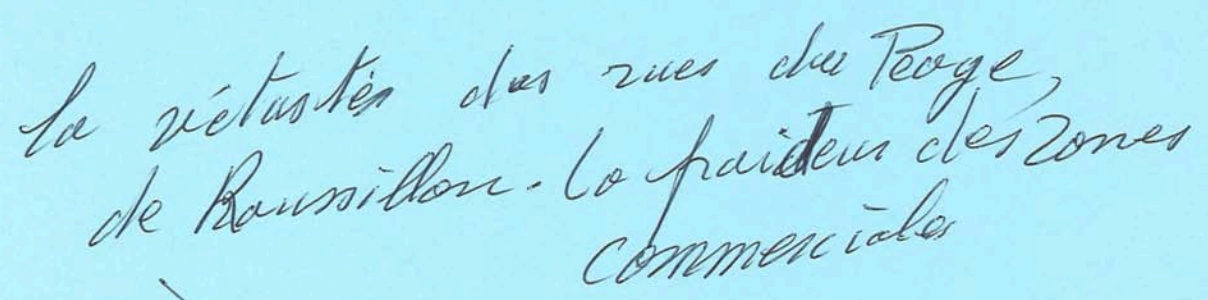 la vétustés des rues du Peage,
de Roussillon. la froideur des zones
commerciales